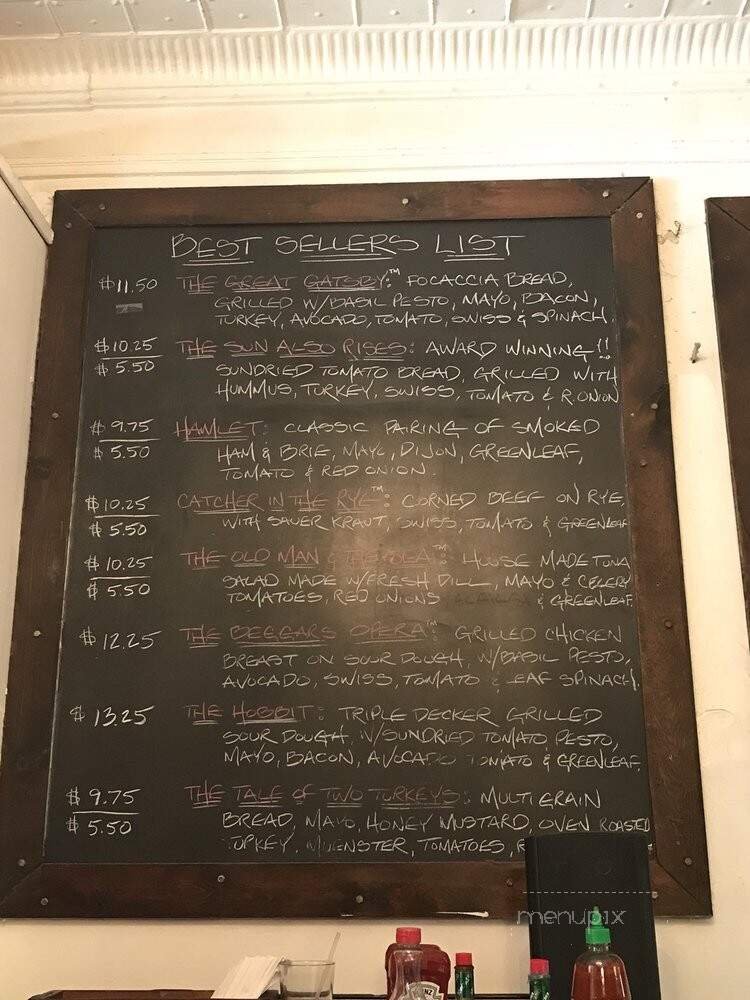 BEST SELLERS LIST
$11.50 THE GREAT GATSBY:™ FOCACCIA BREAD,
GRILLED W/BASIL PESTO, MAYO, BACON,
TURKEY, AVOCADO, TOMATO, SWISS & SPINACH.
$10.25 THE SUN ALSO RISES: AWARD WINNING!!
$5.50 SUNDRIED TOMATO BREAD, GRILLED WITH
HUMMUS, TURKEY, SWISS, TOMATO & R.ONION
$9.75 HAMLET: CLASSIC PAIRING OF SMOKED
$5.50 HAM & BRIE, MAYO, DIJON, GREENLEAF,
TOMATO & RED ONION.
$10.25 CATCHER IN THE RYE™: CORNED BEEF ON RYE,
$5.50 WITH SAUER KRAUT, SWISS, TOMATO & GREENLEAF
$10.25 THE OLD MAN & THE SEA™: HOUSE MADE TUNA
$5.50 SALAD MADE W/FRESH DILL, MAYO & CELERY
TOMATOES, RED ONIONS & GREENLEAF.
$12.25 THE BEGGARS OPERA™: GRILLED CHICKEN
BREAST ON SOUR DOUGH, W/BASIL PESTO,
AVOCADO, SWISS, TOMATO & LEAF SPINACH.
$13.25 THE HOBBIT: TRIPLE DECKER GRILLED
SOUR DOUGH, W/SUNDRIED TOMATO PESTO,
MAYO, BACON, AVOCADO TOMATO & GREENLEAF.
$9.75 THE TALE OF TWO TURKEYS: MULTIGRAIN
$5.50 BREAD, MAYO, HONEY MUSTARD, OVEN ROASTED
TURKEY, MUENSTER, TOMATOES, R
menupix